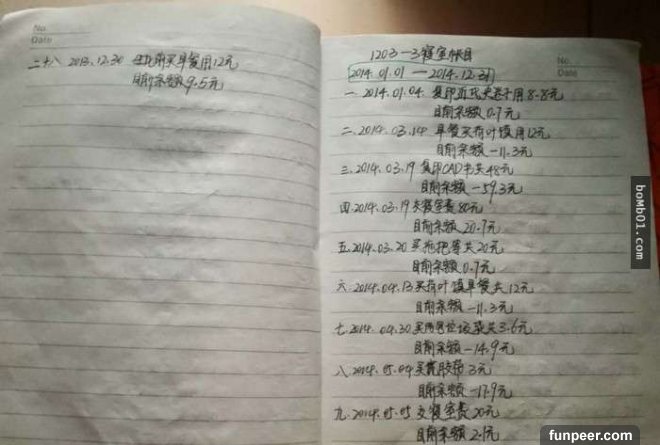 No.
Date
二十八 2013.12.30 买早餐用12元
目前余额9.5元
1203—3寝室帐目
No.
Date
2014.01.01 — 2014.12.31
一 2014.01.04 复印 用8.8元
目前余额0.7元
二.2014.03.14 早餐买荷叶馍用12元
目前余额-11.3元
三.2014.03.19 复印CAD 共48元
目前余额-59.3元
四.2014.03.19 交寝室费80元
目前余额20.7元
五.2014.03.20 买拖把等共20元
目前余额0.7元
六.2014.04.13 买荷叶馍早餐共12元
目前余额-11.3元
七.2014.04.30 买 共3.6元
目前余额-14.9元
八.2014.05.04 买 胶带3元
目前余额-17.9元
九.2014.05.05 交寝室费20元
目前余额2.1元
boMb01.com
funpeer.com